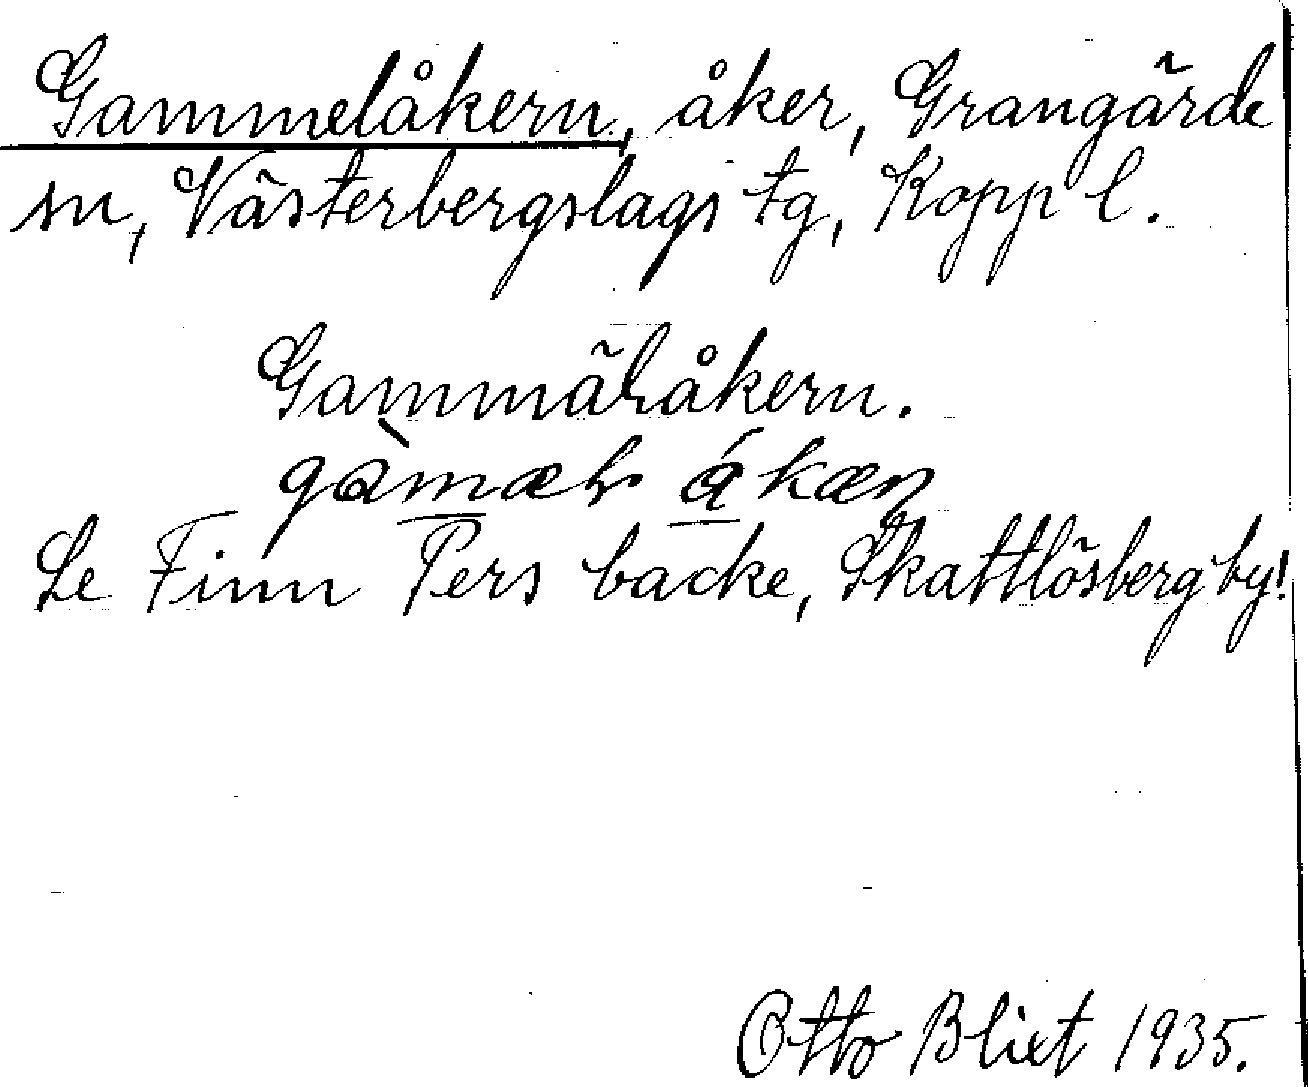 Gammelåkern, åker, Grangärde
sn, Västerbergslags tg, Kopp l.
Gammäläkern.
gàmæł ákæn
Se Finn Pers backe, Skattlösberg by!
Otto Blixt 1935.